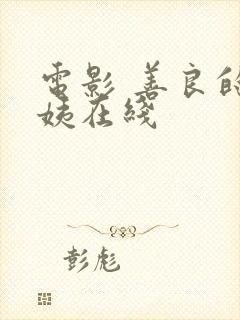 電影 善良的
姨在綫
彭彪